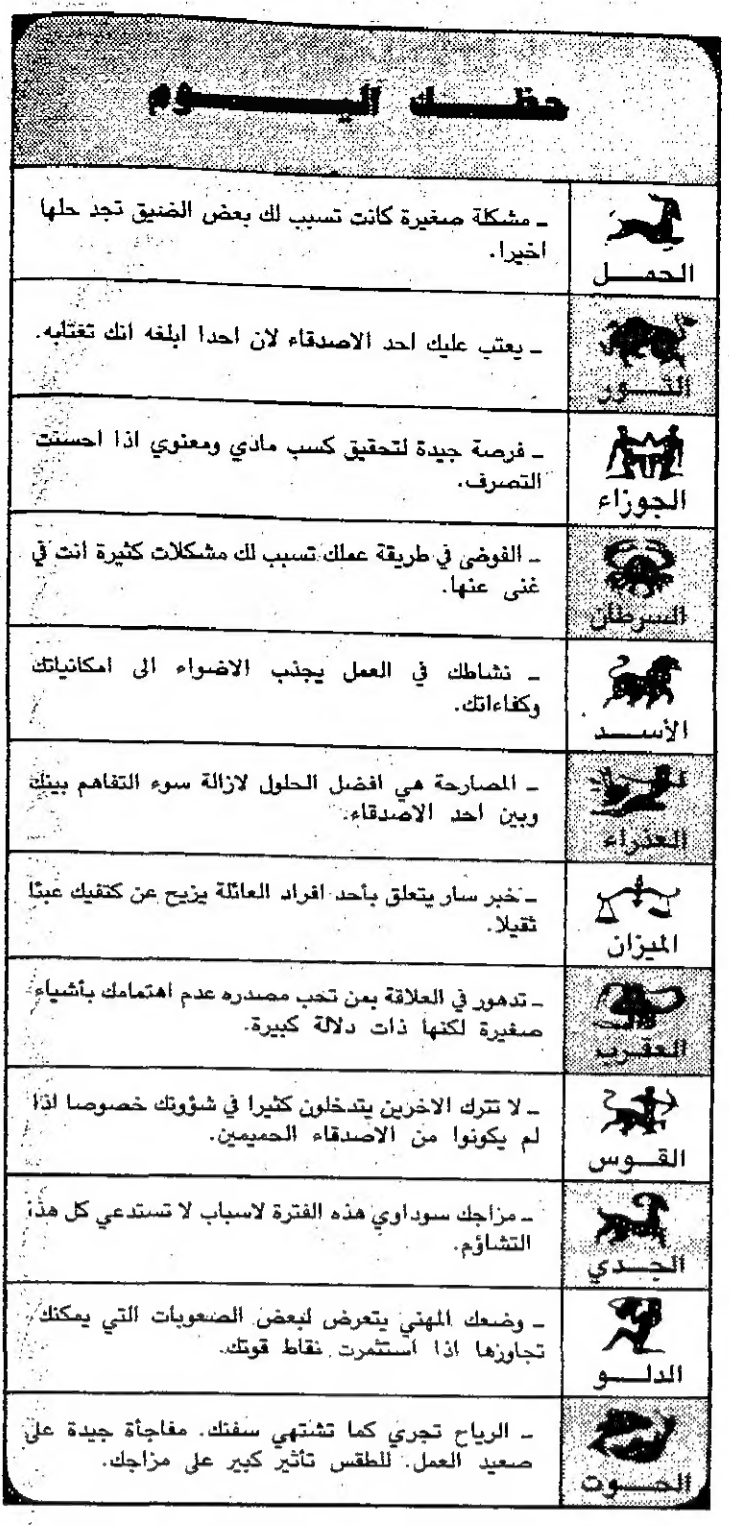 حظك اليوم
ـ مشكلة صغيرة كانت تسبب لك بعض الضيق تجد حلها
اخيرا.
الحمل
ـ يعتب عليك احد الاصدقاء لان احدا ابلغه انك تغتابه.
الثور
ـ فرصة جيدة لتحقيق كسب مادي ومعنوي اذا احسنت
التصرف.
الجوزاء
ـ الفوضى في طريقة عملك تسبب لك مشكلات كثيرة انت في
غنى عنها.
السرطان
ـ نشاطك في العمل يجذب الاضواء الى امكانياتك
وكفاءاتك.
الأسد
ـ المصارحة هي افضل الحلول لازالة سوء التفاهم بينك
وبين احد الاصدقاء.
العذراء
ـ خبر سار يتعلق بأحد افراد العائلة يزيح عن كتفيك عبئا
ثقيلا.
الميزان
ـ تدهور في العلاقة بمن تحب مصدره عدم اهتمامك بأشياء
صغيرة لكنها ذات دلالة كبيرة.
العقرب
ـ لا تترك الاخرين يتدخلون كثيرا في شؤونك خصوصا اذا
لم يكونوا من الاصدقاء الحميمين.
القوس
ـ مزاجك سوداوي هذه الفترة لاسباب لا تستدعي كل هذا
التشاؤم.
الجدي
ـ وضعك المهني يتعرض لبعض الصعوبات التي يمكنك
تجاوزها اذا استثمرت نقاط قوتك.
الدلو
ـ الرياح تجري كما تشتهي سفنك. مفاجأة جيدة على
صعيد العمل. للطقس تأثير كبير على مزاجك.
الحوت